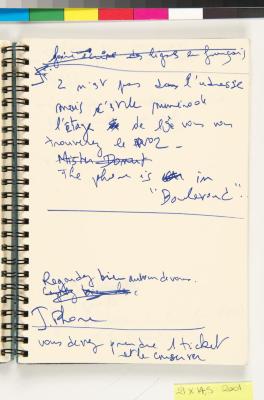 faire écrire des lignes en français
2 n'est pas dans l'adresse
mais c'est le numéro de
l'étage de là vous vous
trouverez le 2 -
Mister Donut
The phone is in
"Boulevard".
Regardez bien autour de vous.
J Phone
vous devez prendre 1 ticket
et le conserver
21 X 14,5 2001